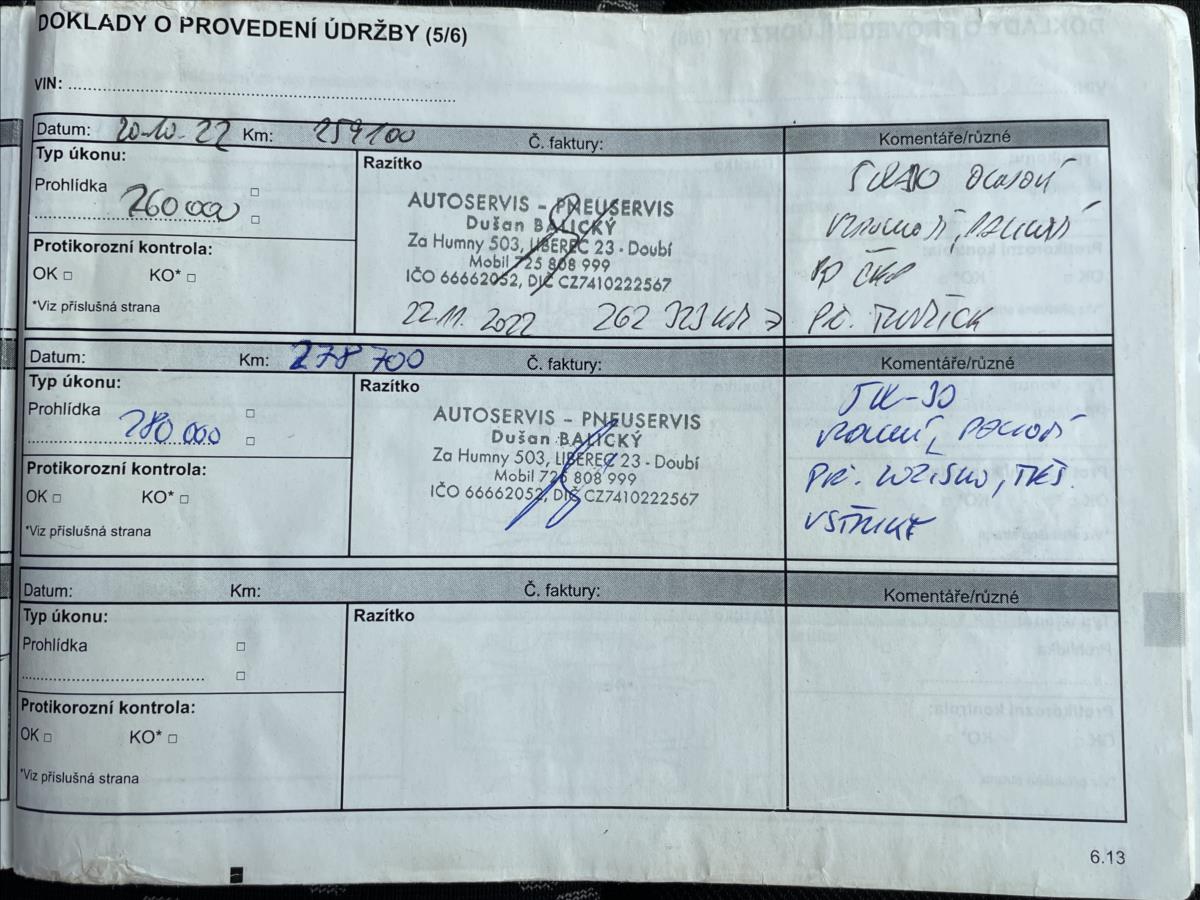 DOKLADY O PROVEDENÍ ÚDRŽBY (5/6)
VIN:
Datum: 20.10.22 Km: 259100 Č. faktury: Komentáře/různé
Typ úkonu:
Prohlídka
260 000
Protikorozní kontrola:
OK □ KO* □
*Viz příslušná strana
Razítko
AUTOSERVIS - PNEUSERVIS
Dušan BALICKÝ
Za Humny 503, LIBEREC 23 - Doubí
Mobil 725 808 999
IČO 66662052, DIČ CZ7410222567
22.11. 2022 262 323 KM
Datum: Km: 278 700 Č. faktury: Komentáře/různé
Typ úkonu:
Prohlídka
280 000
Protikorozní kontrola:
OK □ KO* □
*Viz příslušná strana
Razítko
AUTOSERVIS - PNEUSERVIS
Dušan BALICKÝ
Za Humny 503, LIBEREC 23 - Doubí
Mobil 725 808 999
IČO 66662052, DIČ CZ7410222567
Datum: Km: Č. faktury: Komentáře/různé
Typ úkonu:
Prohlídka
Protikorozní kontrola:
OK □ KO* □
*Viz příslušná strana
Razítko
6.13